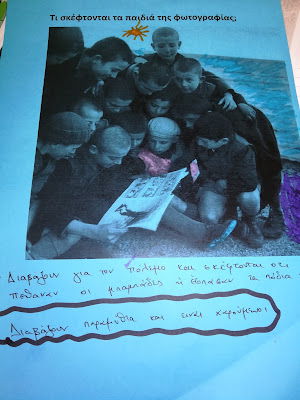 Τι σκέφτονται τα παιδιά της φωτογραφίας;
Διαβάζουν για τον πόλεμο και σκέφτονται οτι
πέθαναν οι μπαμπάδες ή έσπασαν τα πόδια τ
Διαβάζουν παραμύθια και είναι χαρούμενοι